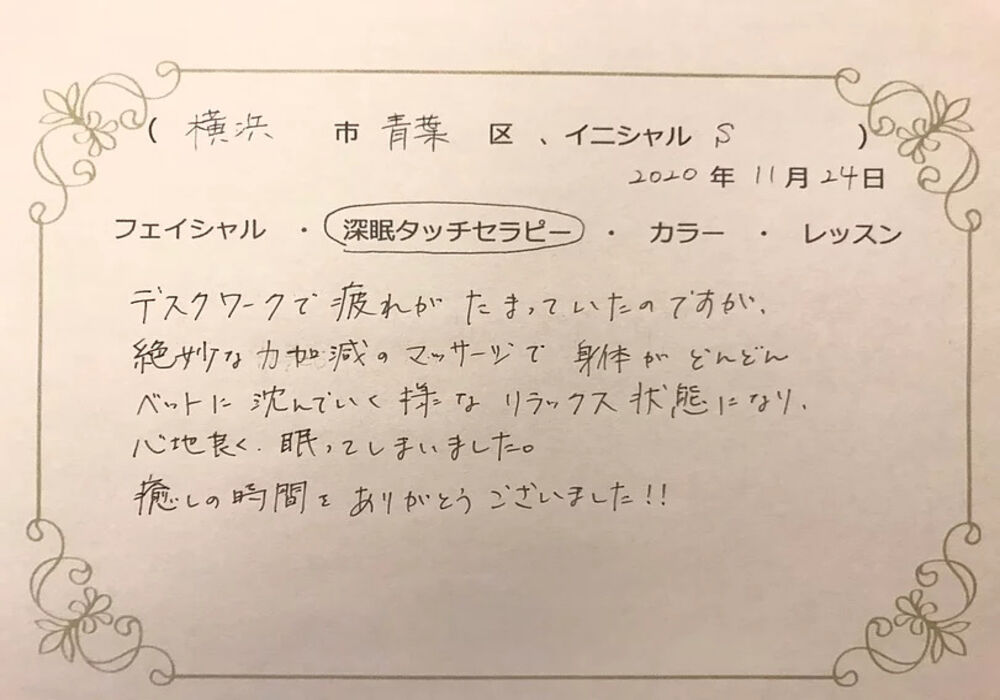 ( 横浜 市 青葉 区 、イニシャル S )
2020 年 11 月 24 日
フェイシャル ・ 深眠タッチセラピー ・ カラー ・ レッスン
デスクワークで 疲れが たまっていたのですが、
絶妙な 力加減の マッサージで 身体が どんどん
ベットに 沈んでいく 様な リラックス 状態になり、
心地良く、眠ってしまいました。
癒しの時間を ありがとう ございました!!